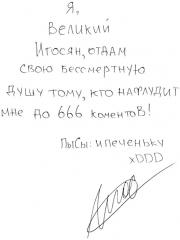 Я,
ВЕЛИКИЙ
Игосян, отдам
свою бессмертную
душу тому, кто нафлудит
мне до 666 коментов!
ПыСы: и печеньку
xDDD